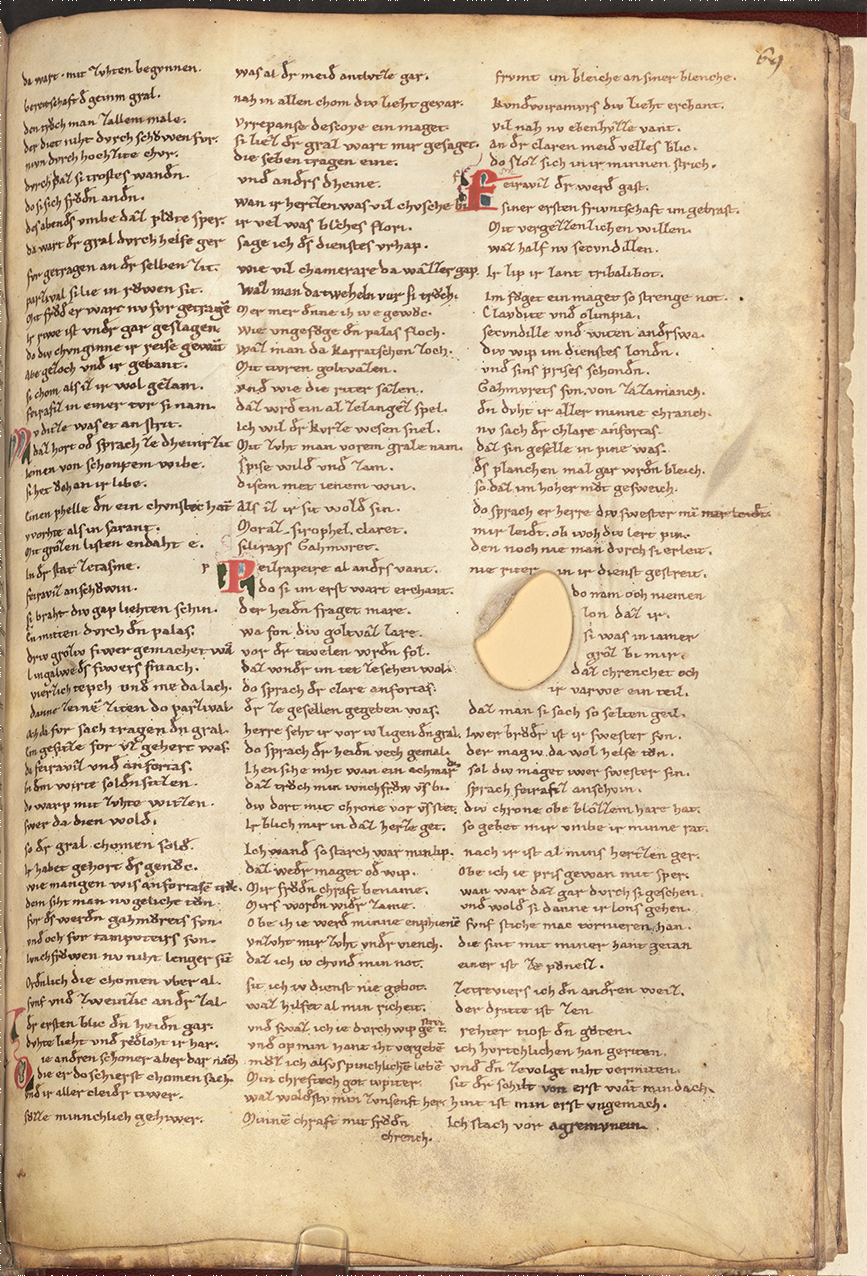 69
da wart. mit zvhten begvnnen.
den troch man zallem male.
der diet niht dvrch schowen fvr.
nivn dvrch hochzite chvr.
do si sich frodn andn.
des abends vmbe daz plote sper.
da wart der gral dvrch helfe ger
fvr getragen an dr selben zit.
parzival si lie in sowen sit.
ir riwe ist vndr gar geslagen.
do div chvnginne ir reise gewan
abe gezoch vnd ir gebant.
si chom als iz ir wol gezam.
feirafiz in einer tvr si nam.
nv diz was et an strit.
daz hort od sprach ze dheinr zit
iemen von schonrem wibe.
si het och an ir libe.
einen phelle dn ein chvnstec hant
worhte als in sarant.
mit grozen listen endaht e.
in dr stat zetasme.
feirafiz anschowin.
si braht div gap liehten schin.
en mitten dvrch dn palas.
driv grozv fiwer gemachet waz
lingalwe des fiwers smach.
vierzich tepch vnd me da lach.
danne zeine ziten do parzival
ach da fvr sach tragen dn gral.
ein gesitze fvr iz gehert was.
da feirafiz vnd anfortas.
bi dm wirte soldn sitzen.
do warp mit zvhte witzen.
swer da dien wold.
so dr gral chomen sold.
ir habet gehort des genoc.
wie mangen wis anfortase trvc.
dem siht man nv geliche tvn.
fvr ds werdn gahmvrets svn.
vnd och fvr tampvteirs svn.
ivnchfrowen nv niht lenger sint
ordnlich die chomen vber al.
fvnf vnd zweinzic an dr zal.
dr ersten blic dn heidn gar.
dvhte lieht vnd reidloht ir har.
die andren schoner aber dar nach
die er do schierst chomen sach.
vnd ir aller cleidr tiwer.
svzze minnchlich gehiwer.
was al dr meid antvtze gar.
nah in allen chom div lieht gevar.
vrrepanse descoye ein maget.
si liez dr gral wart mir gesaget.
die seben tragen eine.
vnd andrs dheine.
wan ir hertzen was vil chvsche bi
ir vel was blches flori.
sage ich ds dienstes vrhap.
wie vil chamerare da wazzer gap.
waz man da tweheln vur si troch.
mer mer dnne ih iv e gewoc.
wie vngefoge dn palas floch.
waz man da karratschen zoch.
mit tvren goltvazen.
vnd wie die riter sazen.
daz wrd ein al zelangez spel.
ich wil dr kvrtze wesen snel.
mit zvht man vorem grale nam.
spise wild vnd zam.
disem met ienem win.
als iz ir sit wold sin.
moraz. siropel. claret.
fillrays Gahmvret.
Peilrapeire al andrs vant.
do si im erst wart erchant.
der heidn fraget mare.
wa fon div goltvaz lare.
vor dr tavelen wrdn fol.
daz wndr im tet zesehen wol.
do sprach dr clare anfortas.
dr ze gesellen gegeben was.
herre seht ir vor iv ligen dn gral.
do sprach dr heidn vech gemal.
ihen sihe niht wan ein achmardi
daz troch min ivnchfrow vns bi.
div dort mit chrone vor vns stet.
ir blich mir in daz hertze get.
ich wand so starch war min lip.
daz wedr maget od wip.
mir frodn chraft beneme.
mirs wordn widr zame.
obe ih ie werd minne enphienc
vnzvht mir zvht vndr viench.
daz ich iv chvnd min not.
sit ich iv dienst nie gebot.
waz hilfet al min richeit.
vnd swaz ich ie dvrch wip gestreit.
vnd op min hant iht vergeben
mvz ich alsvs pinchlichen leben
min chreftech got ivpiter.
waz woldstv min zvnsenft her
minnen chraft mit frodn
chrench.
frvmt im bleiche an siner blenche.
kvndwiramvrs div lieht erchant.
vil nah nv ebenhvzze vant.
an dr claren meid velles blic.
do sloz sich in ir minnen strich.
feirafiz dr werd gast.
siner ersten frivntschaft im gebrast.
mit vergezzenlichen willen.
waz half nv secvndillen.
ir lip ir lant tribalibot.
im foget ein maget so strenge not.
Clavdite vnd olimpia.
secvndille vnd witen andrswa.
div wip im dienstes londn.
vnd sins prises schondn.
Gahmvrets svn. von zazamanch.
dn dvht ir aller minne chranch.
nv sach dr chlare anfortas.
daz sin geselle in pine was.
ds planchen mal gar wrdn bleich.
so daz im hoher mvt gesweich.
do sprach er herre div swester min mir leidt.
mir leidt. ob iv div lert pin.
den noch nie man dvrch si erleit.
nie riter in ir dienst gestreit.
do nam och niemen
lon daz ir.
si was in iamer
groz bi mir.
daz chrenchet och
ir varwe ein teil.
daz man si sach so selten geil.
iwer brodr ist ir swester svn.
der mag iv da wol helfe tvn.
sol div maget iwer swester sin.
sprach feirafiz anschvin.
div chrone obe blozzem hare hat.
so gebet mir vmbe ir minne rat.
nach ir ist al mins hertzen ger.
obe ich ie pris gewan mit sper.
wan war daz gar dvrch si geschen.
vnd wold si danne ir lons gehen.
fvnf stiche mac tvrnieren han.
die sint mit miner hant getan
einer ist ze pvneiz.
zetreviers ich dn andren weiz.
der dritte ist zen
rehter tiost dn gvten.
ich hvrtchlichen han geriten.
vnd dn zevolge niht vermiten.
sit dr schilt von erst wart min dach.
hivt ist min erst vngemach.
ich stach vor agremvntin.